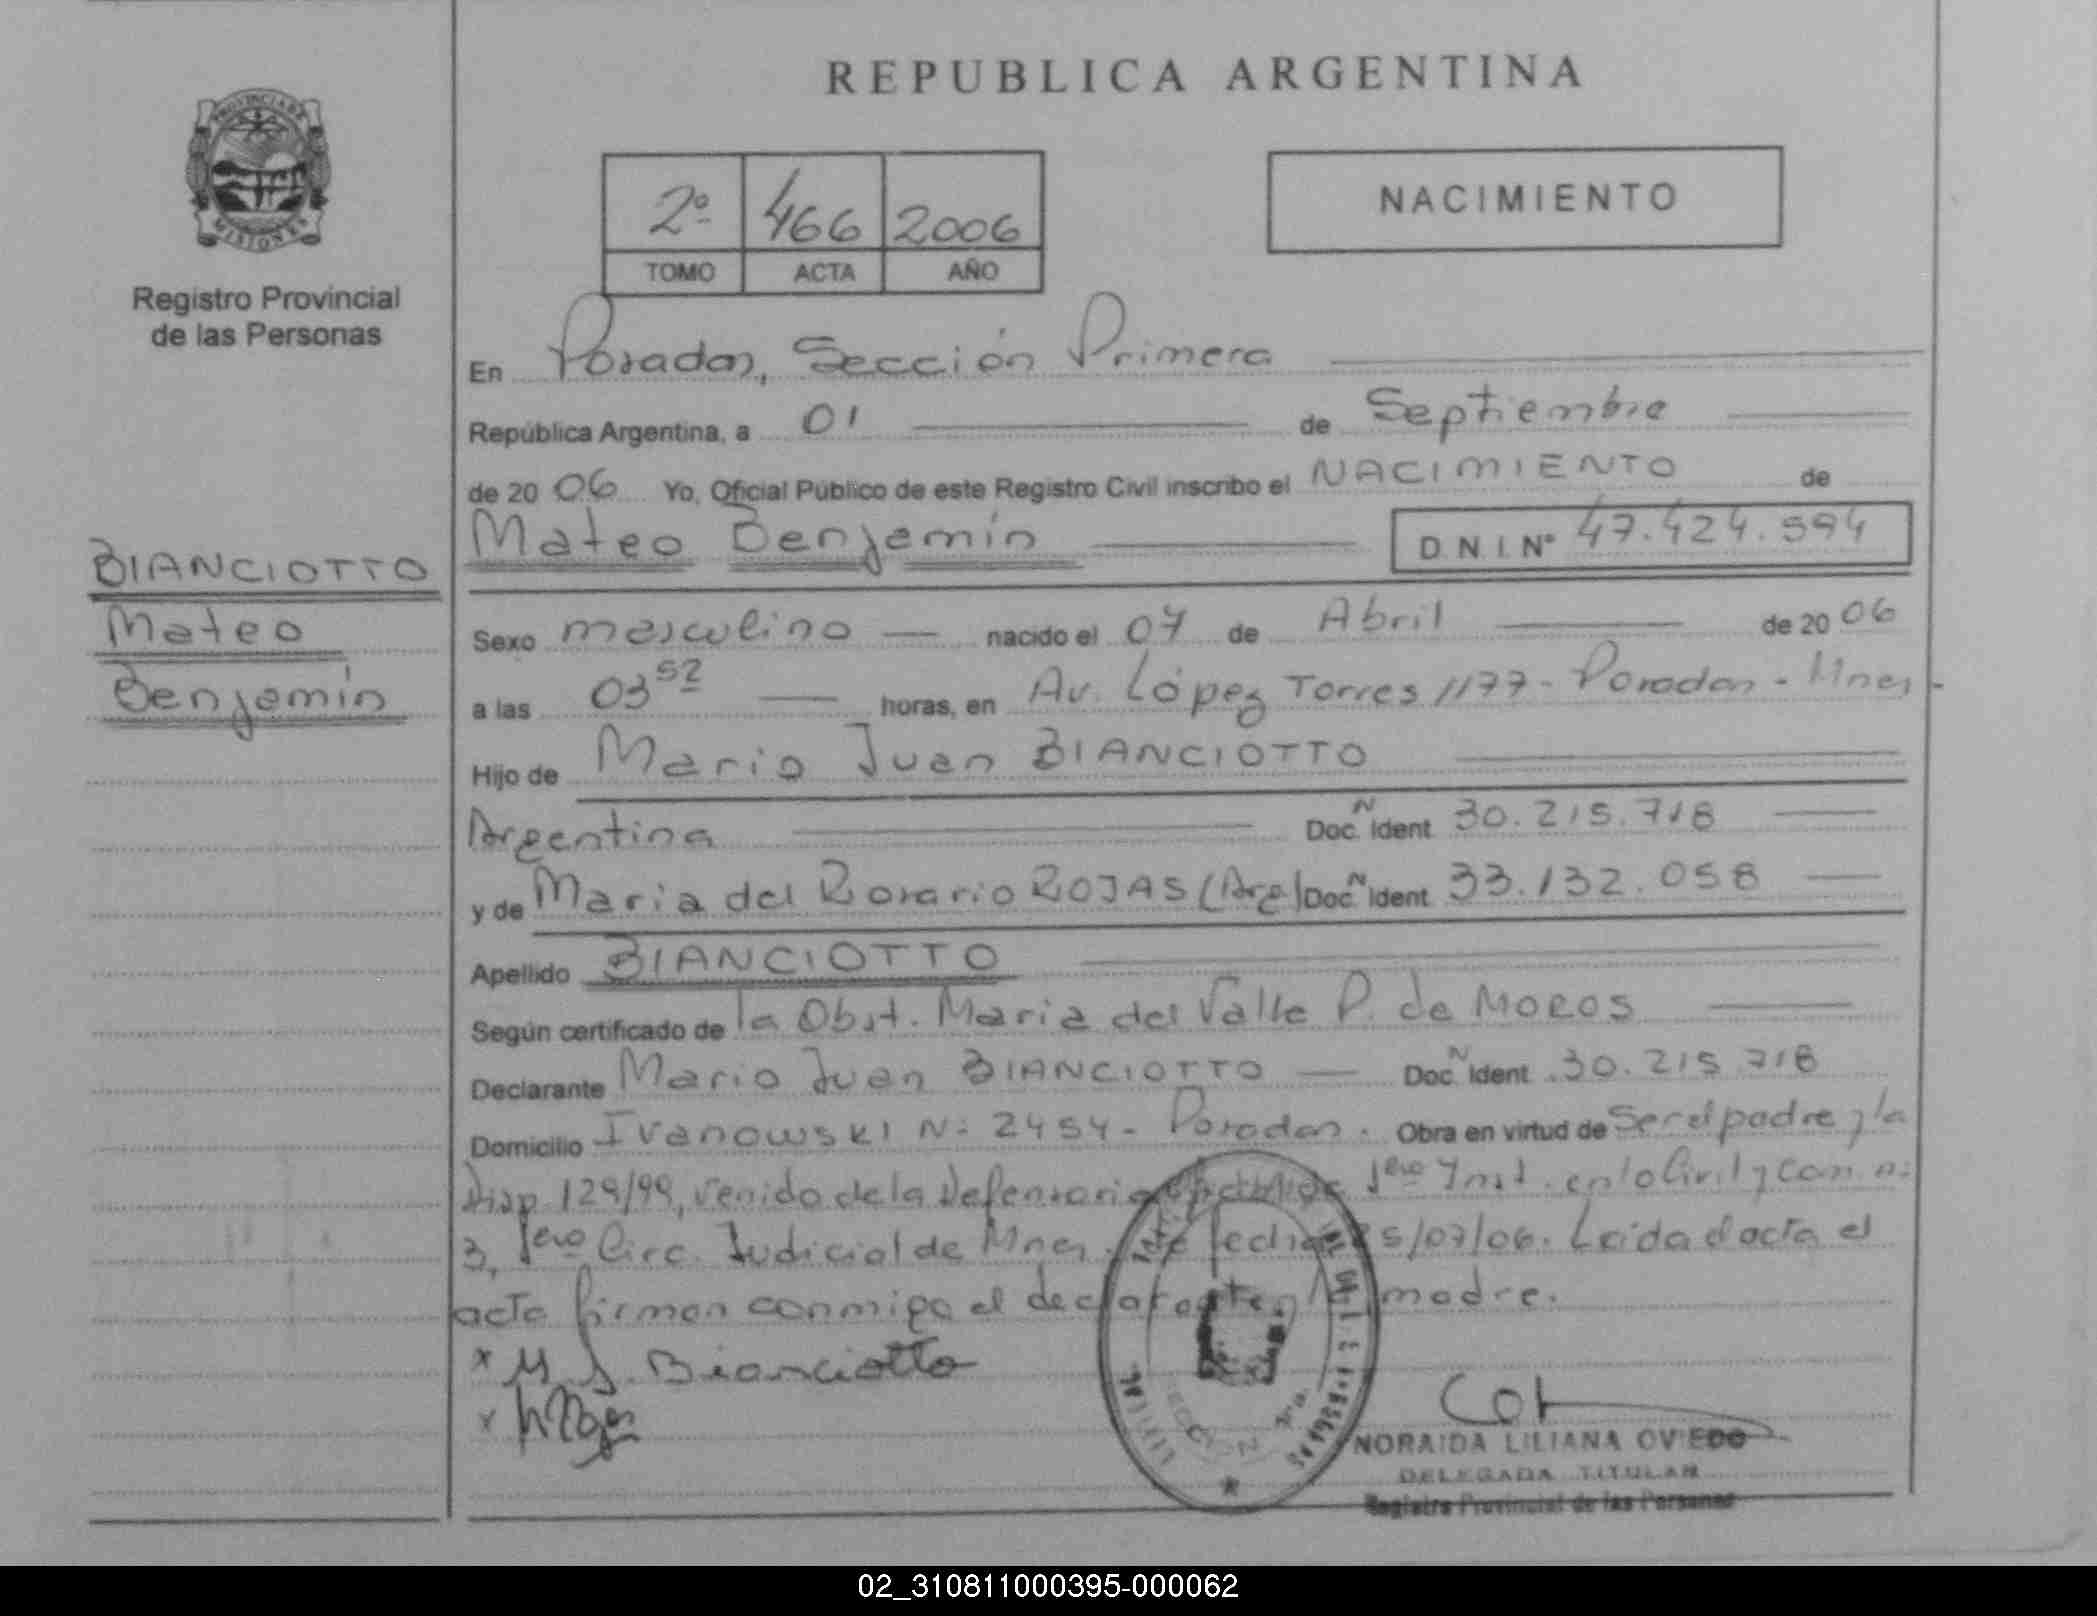 REPUBLICA ARGENTINA
PROVINCIA DE MISIONES
Registro Provincial
de las Personas
2º 466 2006
TOMO ACTA AÑO
NACIMIENTO
BIANCIOTTO
Mateo
Benjamín
En Posadas, Sección Primera
República Argentina, a 01 de Septiembre
de 2006 Yo, Oficial Público de este Registro Civil inscribo el NACIMIENTO de
Mateo Benjamín D.N.I. Nº 47.424.594
Sexo masculino nacido el 07 de Abril de 2006
a las 03 52 horas, en Av. López Torres 1177 - Posadas - Mnes -
Hijo de Mario Juan BIANCIOTTO
Argentina Doc. Ñ Ident 30.215.718
y de Maria del Rosario ROJAS (Arg) Doc. Ñ Ident 33.132.058
Apellido BIANCIOTTO
Según certificado de la Obst. Maria del Valle P. de MOROS
Declarante Mario Juan BIANCIOTTO Doc. Ñ Ident 30.215.718
Domicilio Ivanowski Nº 2454 - Posadas. Obra en virtud de Ser el padre y la
Disp. 129/99, venido de la Defensoria 1era Inst. en lo Civil y Com. nº
3, 1era Circ. Judicial de Mnes. de fecha 5/07/06. Leida el acta el
acta firman conmigo el declarante madre.
x M J. Bianciotto
x
NORAIDA LILIANA OVIEDO
DELEGADA TITULAR
Registro Provincial de las Personas
02_310811000395-000062